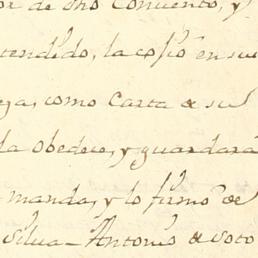 or de dho Convento, y
tendido, la cojio en sus
eza, como Carta de su
la obedece, y guardará
manda, y lo firmó de
Silua - Antonio de Soto